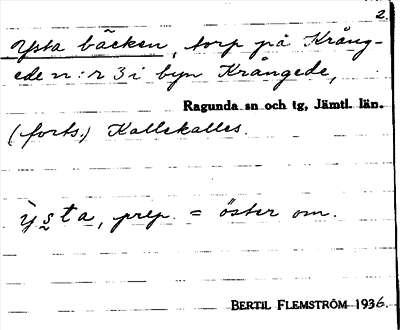 2.
Ysta bäcken, torp på Krång-
ede n:r 3 i byn Krångede,
Ragunda sn och tg, Jämtl. län.
(forts.) Kallekalles.
ỳsta, prep. = öster om.
BERTIL FLEMSTRÖM 1936.